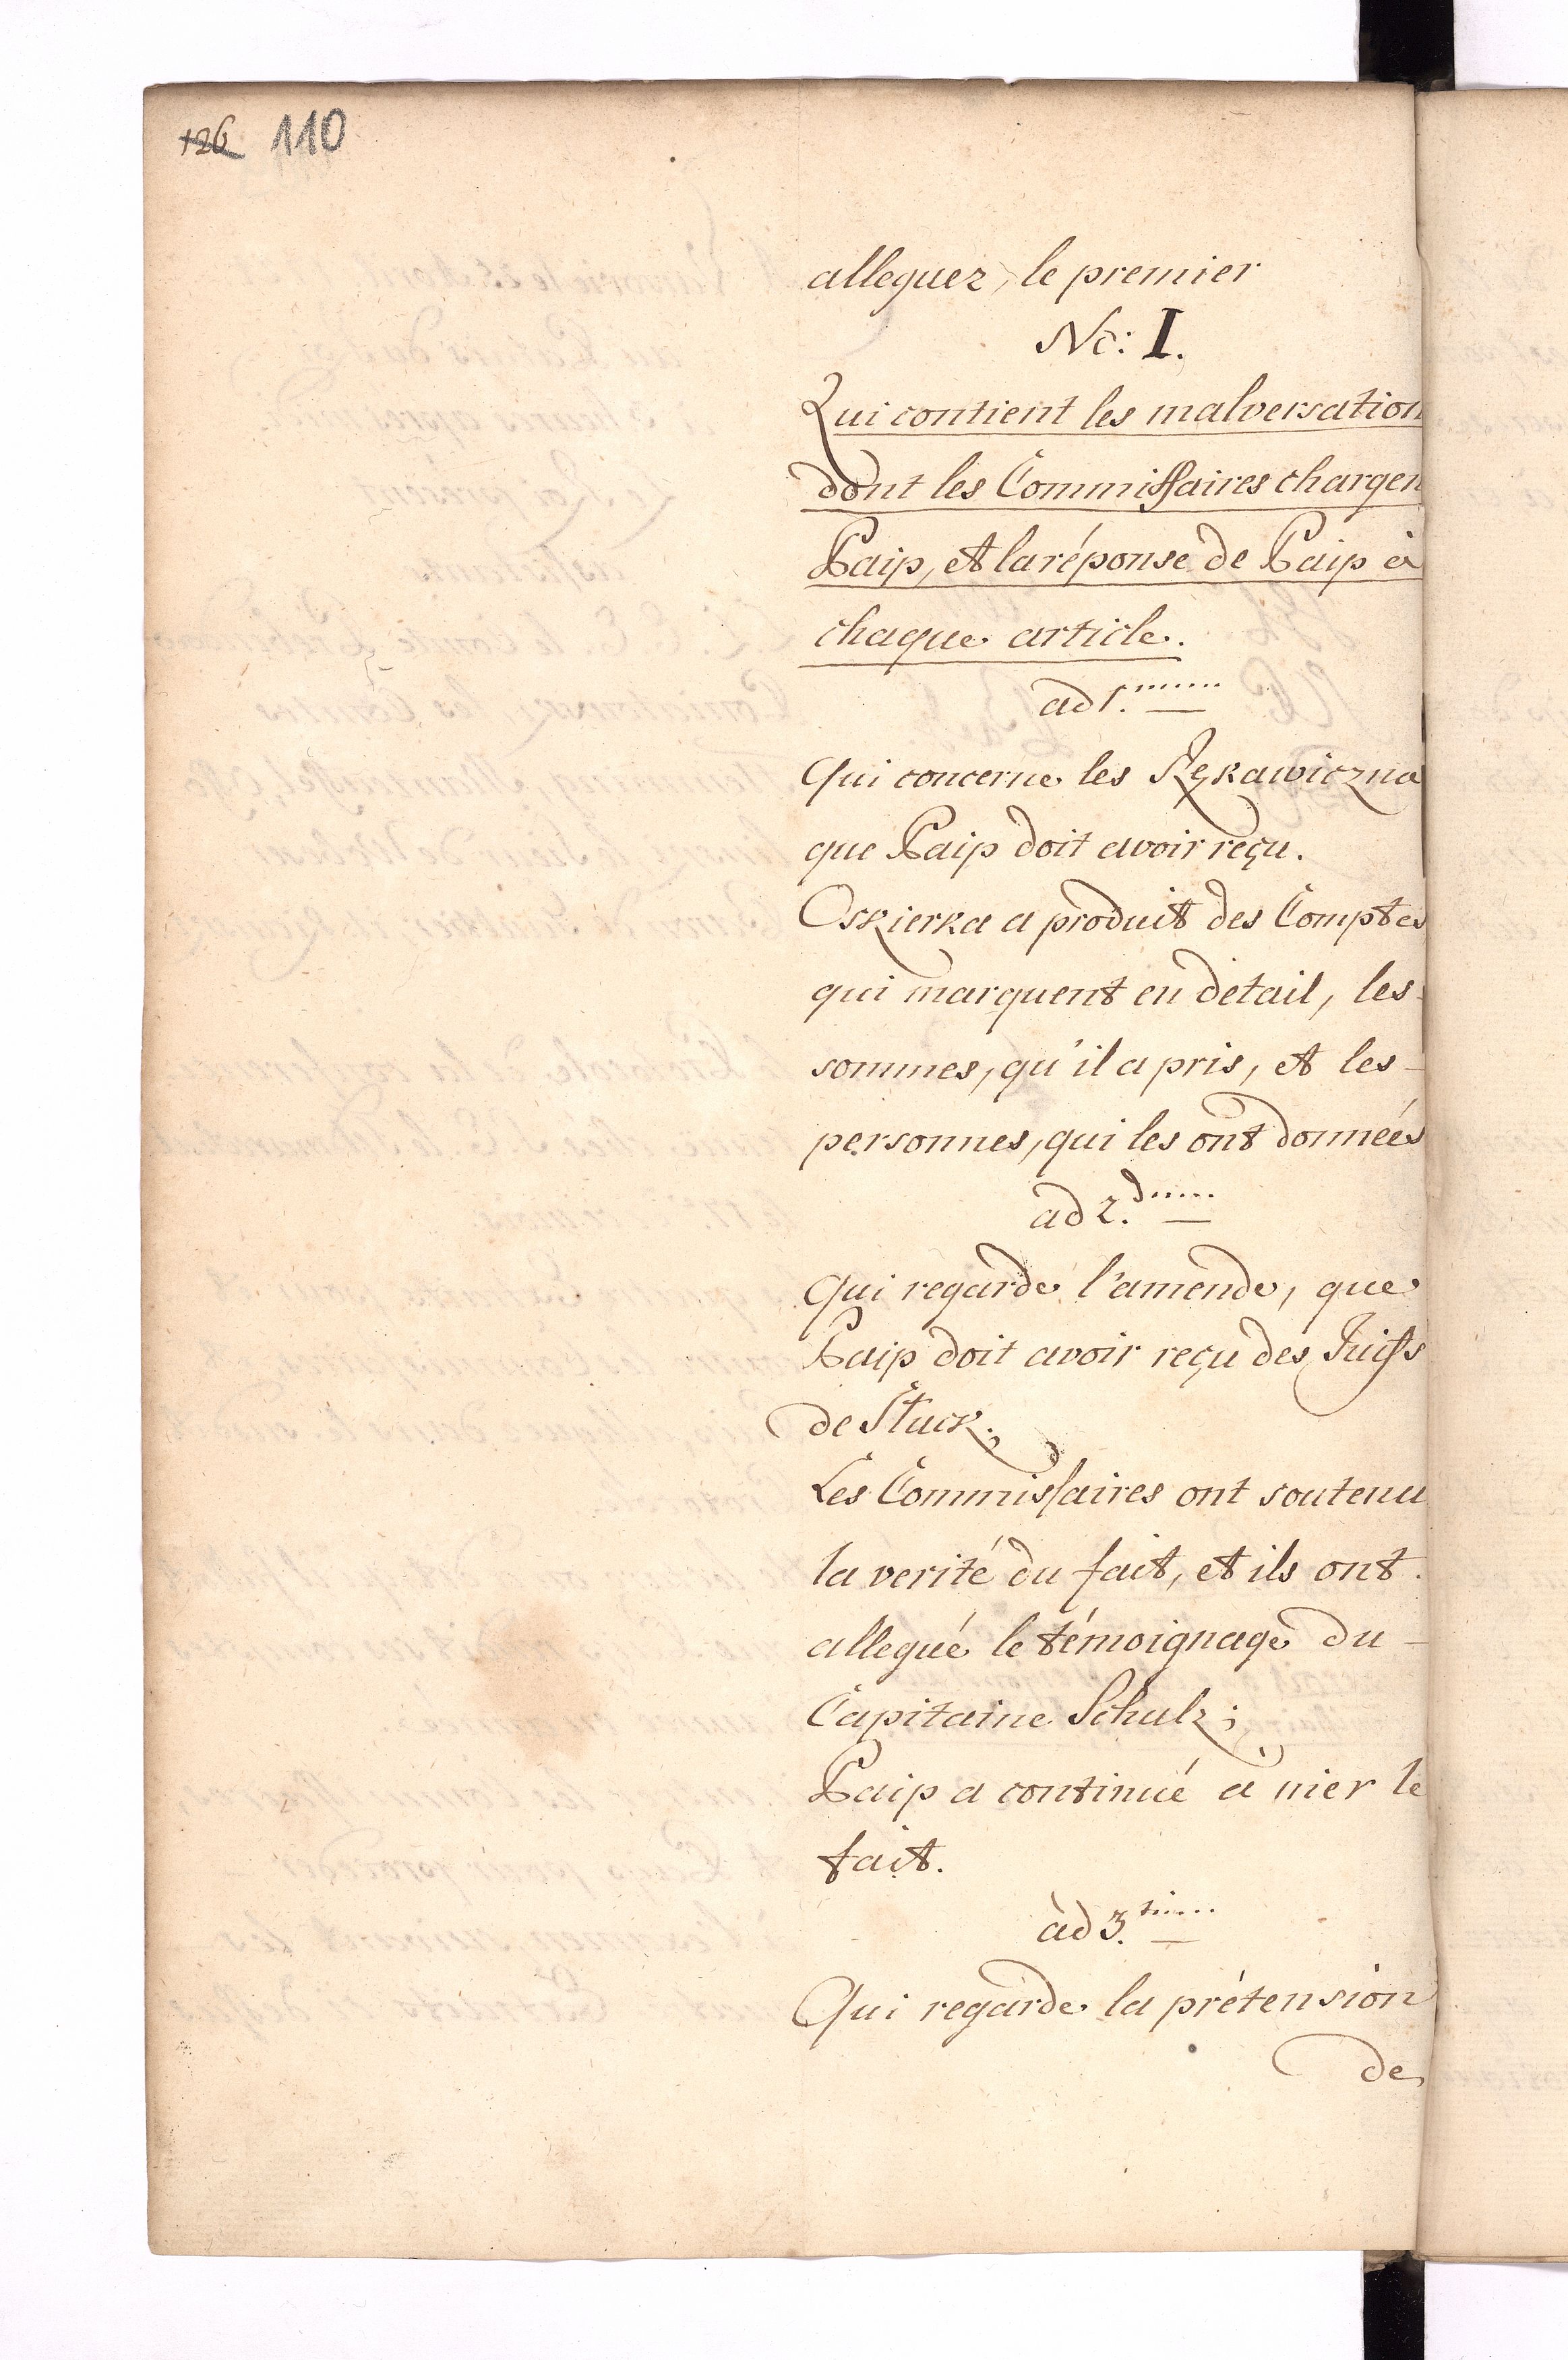 126 110
alleguez, le premier
No: I.
Qui contient les malversation
dont les Commissaires chargen
Paip, et la réponse de Paip à
chaque article.
ad 1.
Qui concerne les Rękawiczna
que Paip doit avoir reçu.
Oskierka a produit des Comptes
qui marquent en detail, les
sommes, qu'il a pris, et les
personnes, qui les ont donnéés
ad 2.d
Qui regarde l'amende, que
Paip doit avoir reçu des Juifs
de Sluck;
Les Commissaires ont soutenu
la verité du fait, et ils ont
allegué le témoignage du
Capitaine Schulz;
Paip a continué a nier le
fait.
ad 3.ti
Qui regarde la prétension
de